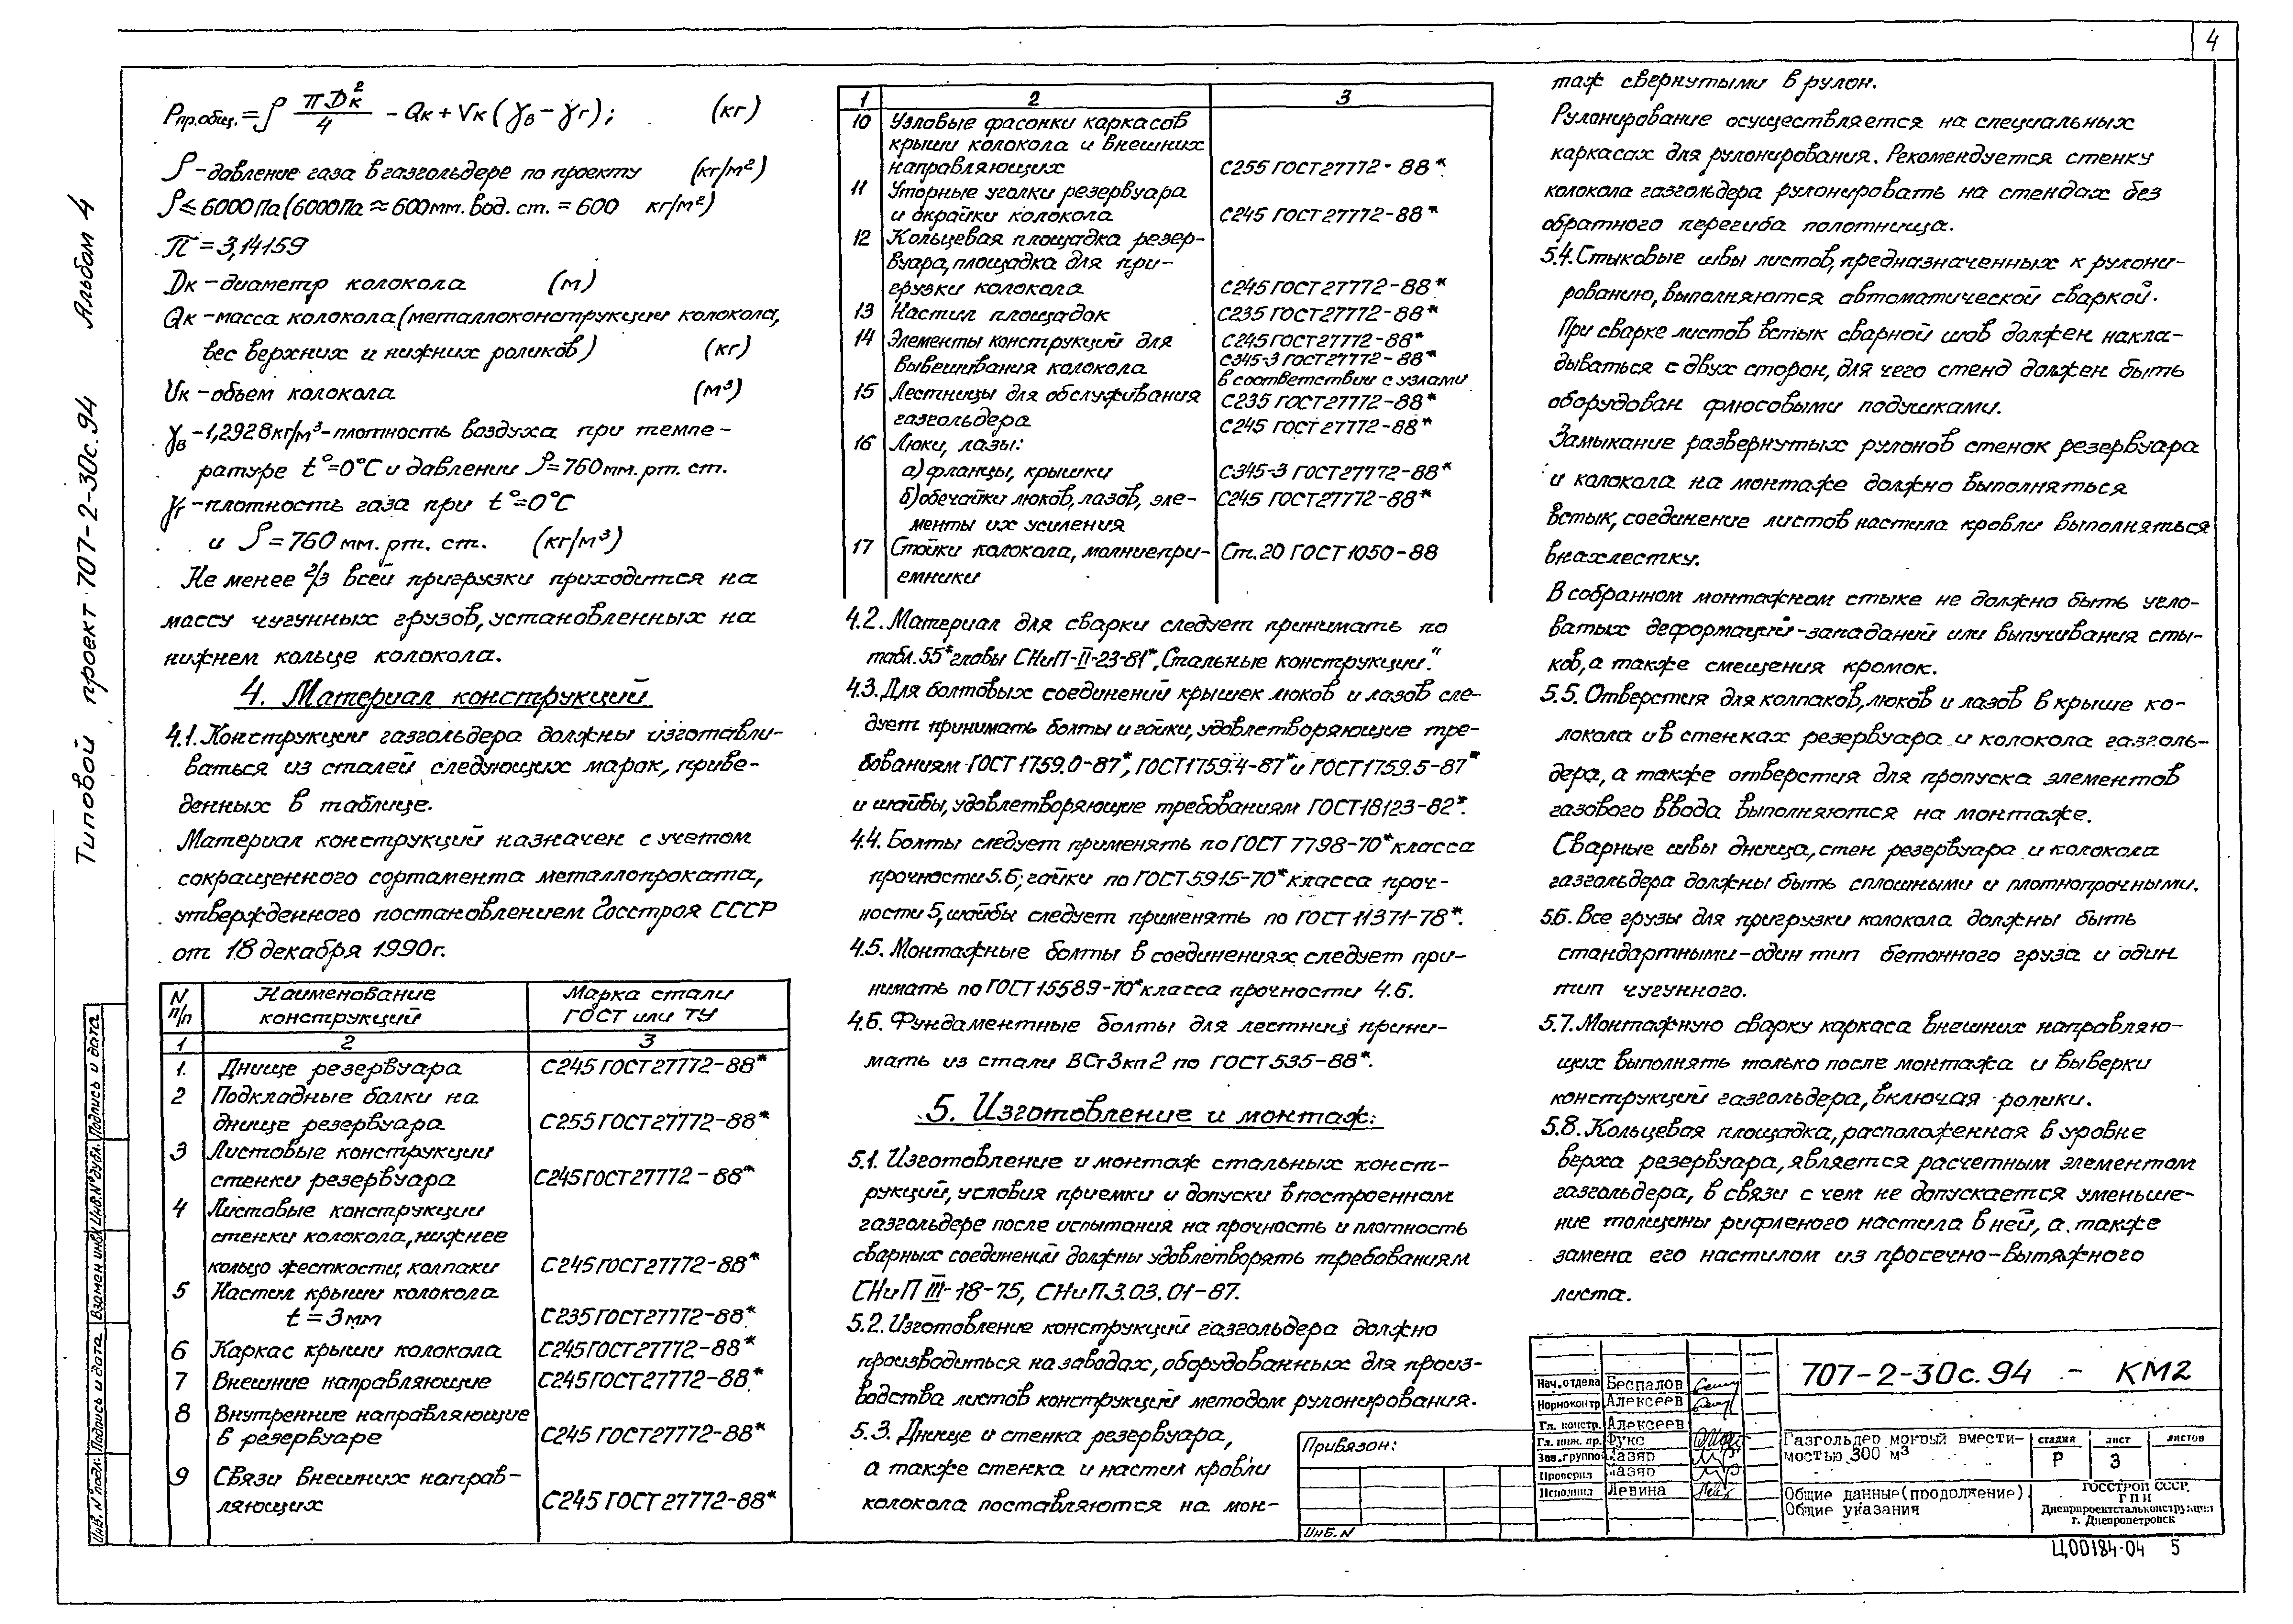 4
Типовой проект 707-2-30с.94 Альбом 4
Pпр.общ. = ρ πDк²/4 - Qк + Vк (γв - γг); (кг)
ρ - давление газа в газгольдере по проекту (кг/м²)
ρ ≤ 6000 Па (6000 Па ≈ 600 мм. вод. ст. = 600 кг/м²)
π = 3,14159
Dк - диаметр колокола (м)
Qк - масса колокола (металлоконструкции колокола,
вес верхних и нижних роликов) (кг)
Vк - объем колокола (м³)
γв - 1,2928 кг/м³ - плотность воздуха при темпе-
ратуре t°=0°С и давлении ρ=760 мм. рт. ст.
γг - плотность газа при t°=0°С
и ρ = 760 мм. рт. ст. (кг/м³)
Не менее 2/3 всей пригрузки приходится на
массу чугунных грузов, установленных на
нижнем кольце колокола.
4. Материал конструкций
4.1. Конструкции газгольдера должны изготавли-
ваться из сталей следующих марок, приве-
денных в таблице.
Материал конструкций назначен с учетом
сокращенного сортамента металлопроката,
утвержденного постановлением Госстроя СССР
от 18 декабря 1990г.
N п/п | Наименование конструкций | Марка стали ГОСТ или ТУ
1 2 3
1. Днище резервуара С245 ГОСТ 27772-88*
2 Подкладные балки на
днище резервуара С255 ГОСТ 27772-88*
3 Листовые конструкции
стенки резервуара С245 ГОСТ 27772-88*
4 Листовые конструкции
стенки колокола, нижнее
кольцо жесткости, колпаки С245 ГОСТ 27772-88*
5 Настил крыши колокола
t = 3 мм С235 ГОСТ 27772-88*
6 Каркас крыши колокола С245 ГОСТ 27772-88*
7 Внешние направляющие С245 ГОСТ 27772-88*
8 Внутренние направляющие
в резервуаре С245 ГОСТ 27772-88*
9 Связи внешних направ-
ляющих С245 ГОСТ 27772-88*
1 2 3
10 Узловые фасонки каркасов
крыши колокола и внешних
направляющих С255 ГОСТ 27772-88*
11 Упорные уголки резервуара
и окрайки колокола С245 ГОСТ 27772-88*
12 Кольцевая площадка резер-
вуара, площадка для при-
грузки колокола С245 ГОСТ 27772-88*
13 Настил площадок С235 ГОСТ 27772-88*
14 Элементы конструкций для С245 ГОСТ 27772-88*
вывешивания колокола С345-3 ГОСТ 27772-88*
в соответствии с узлами
15 Лестницы для обслуживания С235 ГОСТ 27772-88*
газгольдера С245 ГОСТ 27772-88*
16 Люки, лазы:
а) фланцы, крышки С345-3 ГОСТ 27772-88*
б) обечайки люков, лазов, эле- С245 ГОСТ 27772-88*
менты их усиления
17 Стойки колокола, молниепри- Ст. 20 ГОСТ 1050-88
емники
4.2. Материал для сварки следует принимать по
табл. 55* главы СНиП-II-23-81* „Стальные конструкции."
4.3. Для болтовых соединений крышек люков и лазов сле-
дует принимать болты и гайки, удовлетворяющие тре-
бованиям ГОСТ 1759.0-87*, ГОСТ 1759.4-87* и ГОСТ 1759.5-87*
и шайбы, удовлетворяющие требованиям ГОСТ 18123-82*.
4.4. Болты следует применять по ГОСТ 7798-70* класса
прочности 5.6, гайки по ГОСТ 5915-70* класса проч-
ности 5, шайбы следует применять по ГОСТ 11371-78*.
4.5. Монтажные болты в соединениях следует при-
нимать по ГОСТ 15589-70* класса прочности 4.6.
4.6. Фундаментные болты для лестниц прини-
мать из стали ВСт3кп2 по ГОСТ 535-88*.
5. Изготовление и монтаж.
5.1. Изготовление и монтаж стальных конст-
рукций, условия приемки и допуски в построенном
газгольдере после испытания на прочность и плотность
сварных соединений должны удовлетворять требованиям
СНиП III-18-75, СНиП 3.03.01-87.
5.2. Изготовление конструкций газгольдера должно
производиться на заводах, оборудованных для произ-
водства листов конструкций методом рулонирования.
5.3. Днище и стенка резервуара,
а также стенка и настил кровли
колокола поставляются на мон-
таж свернутыми в рулон.
Рулонирование осуществляется на специальных
каркасах для рулонирования. Рекомендуется стенку
колокола газгольдера рулонировать на стендах без
обратного перегиба полотнища.
5.4. Стыковые швы листов, предназначенных к рулони-
рованию, выполняются автоматической сваркой.
При сварке листов встык сварной шов должен накла-
дываться с двух сторон, для чего стенд должен быть
оборудован флюсовыми подушками.
Замыкание развернутых рулонов стенок резервуара
и колокола на монтаже должно выполняться
встык, соединение листов настила кровли выполняться
внахлестку.
В собранном монтажном стыке не должно быть угло-
ватых деформаций-западаний или выпучивания сты-
ков, а также смещения кромок.
5.5. Отверстия для колпаков, люков и лазов в крыше ко-
локола и в стенках резервуара и колокола газголь-
дера, а также отверстия для пропуска элементов
газового ввода выполняются на монтаже.
Сварные швы днища, стен резервуара и колокола
газгольдера должны быть сплошными и плотнопрочными.
5.6. Все грузы для пригрузки колокола должны быть
стандартными-один тип бетонного груза и один
тип чугунного.
5.7. Монтажную сварку каркаса внешних направляю-
щих выполнять только после монтажа и выверки
конструкций газгольдера, включая ролики.
5.8. Кольцевая площадка, расположенная в уровне
верха резервуара, является расчетным элементом
газгольдера, в связи с чем не допускается уменьше-
ние толщины рифленого настила в ней, а также
замена его настилом из просечно-вытяжного
листа.
Привязан:
Инв. N
Нач. отдела Беспалов
Нормоконтр Алексеев
Гл. констр. Алексеев
Гл. инж. пр. Фукс
Зав. группо Лазяр
Проверил Лазяр
Исполнил Левина
707-2-30с.94 - КМ2
Газгольдер мокрый вмести-
мостью 300 м³
стадия лист листов
Р 3
Общие данные (продолжение)
Общие указания
ГОССТРОЙ СССР
ГПИ
Днепрпроектстальконструкция
г. Днепропетровск
Ц00184-04 5
Инв. N подл. Подпись и дата Взамен инв.N Инв.N дубл. Подпись и дата